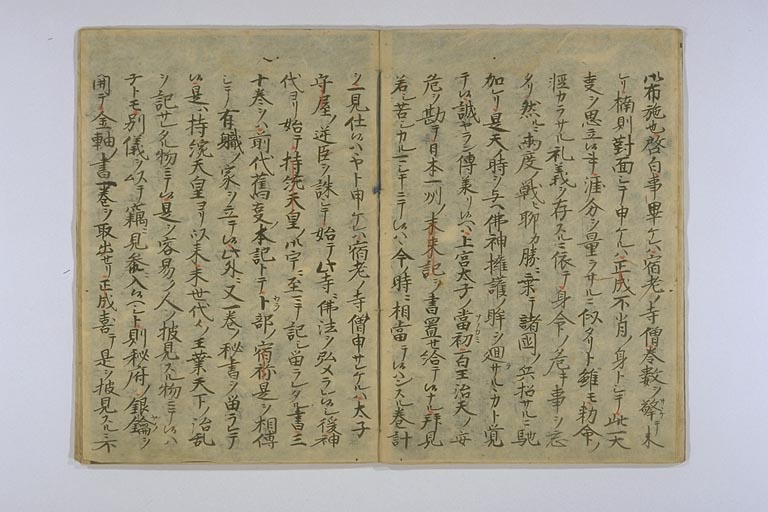 布施也啓白事畢ケレハ宿老ノ寺僧巻数ヲ捧テ来
レリ楠則對面シテ申ケルハ正成不肖ノ身トシテ此一大
事ヲ思立候事涯分ヲ量ラサルニ似タリト雖モ勅命ノ
軽カラサル礼義ヲ存スルニ依テ身命ノ危キ事ヲ忘
タリ然ニ両度ノ戦ニ聊カ勝ニ乗テ諸国ノ兵招サルニ馳
加レリ是天ノ時ヲ与佛神擁護ノ眸ヲ廻サルカト覚
テ候誠ヤラン傳承リ候ヘハ上宮太子ノ當初百王治天ノ安
危ヲ勘テ日本一州ノ未来記ヲ書置セ給テ候ナル拝見
若シ苦シカルマシキニテ候ハヽ今ノ時ニ相當テ候ハンスル巻計
ヲ一見仕候ハヤト申ケレハ宿老ノ寺僧申サレケルハ太子
守屋ノ逆臣ヲ誅シテ始テ此寺ヲ佛法ヲ弘メラレ候シ後神
代ヨリ始テ持統天皇ノ御宇ニ至マテ記シ留ラレタル書三
十巻ヲハ前代舊事本記トテ卜部ノ宿祢是ヲ相傳
シテ有職ノ家ヲ立テ候此外ニ又一巻ノ秘書ヲ留ラレテ
候是ハ持統天皇ヨリ以来末世代々ノ王業天下ノ治乱
ヲ記サレタル物ニテ候是ヲ容易ク人ノ披見スル物ニテハ候ハ
子トモ別儀ヲ以テ竊ニ見参ニ入候ヘシト則秘府ノ銀鑰ヲ
開テ金軸ノ書一巻ヲ取出セリ正成喜テ是ヲ披見スルニ不